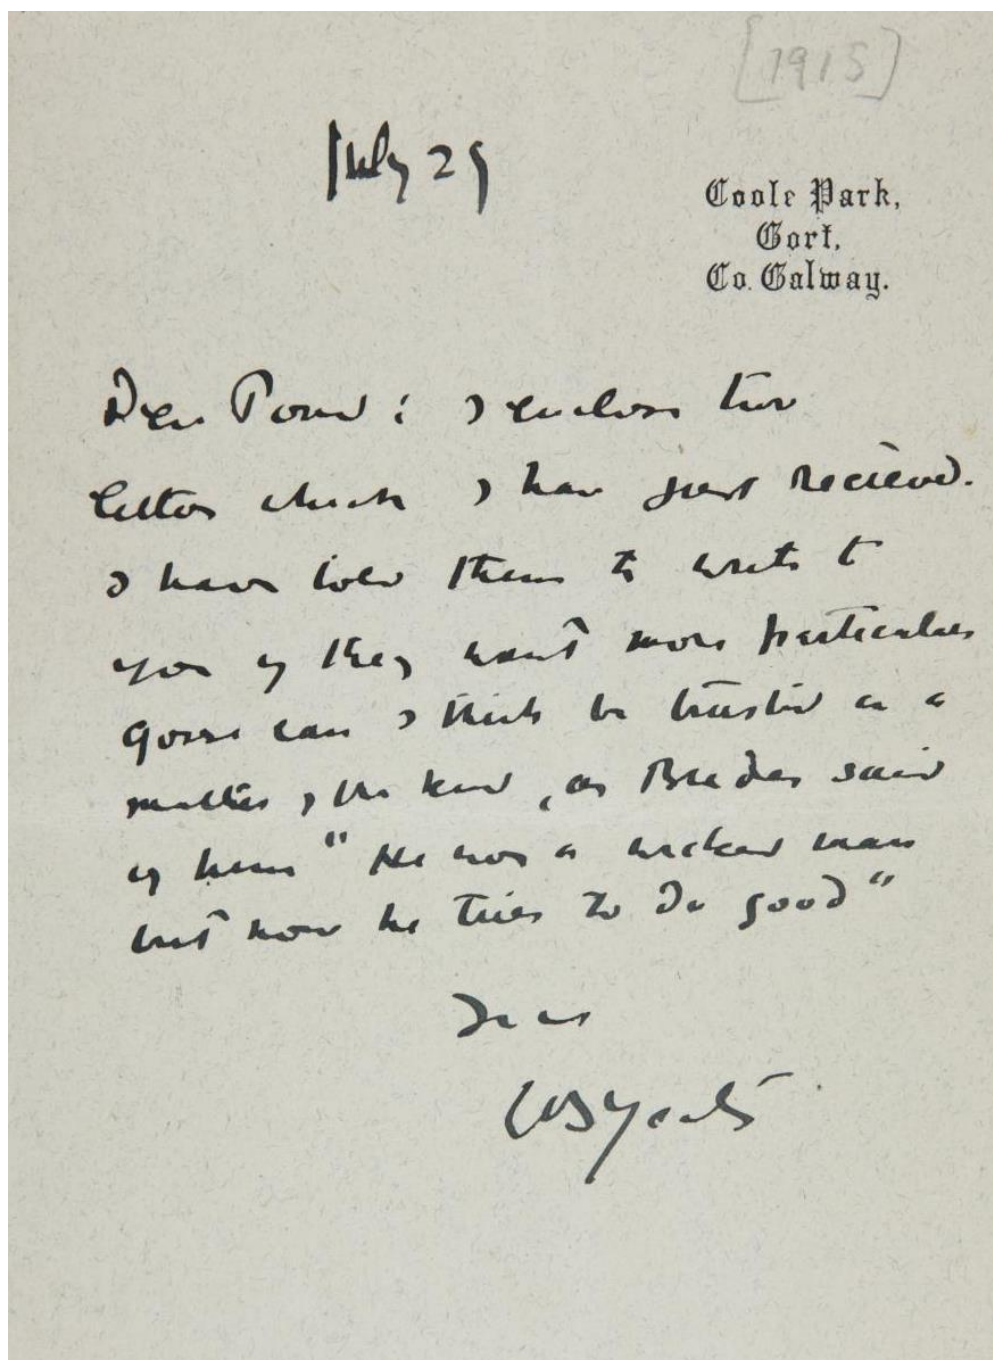 [1915]
July 29
Coole Park,
Gort,
Co. Galway.
Dear Pound: I enclose two
letters which I have just recieved.
I have told them to write to
you if they want more particulars
Gosse can I think be trusted in a
matter of this kind, as
said
of him "He was a wicked man
but now he tries to do good"
Yours
WBYeats